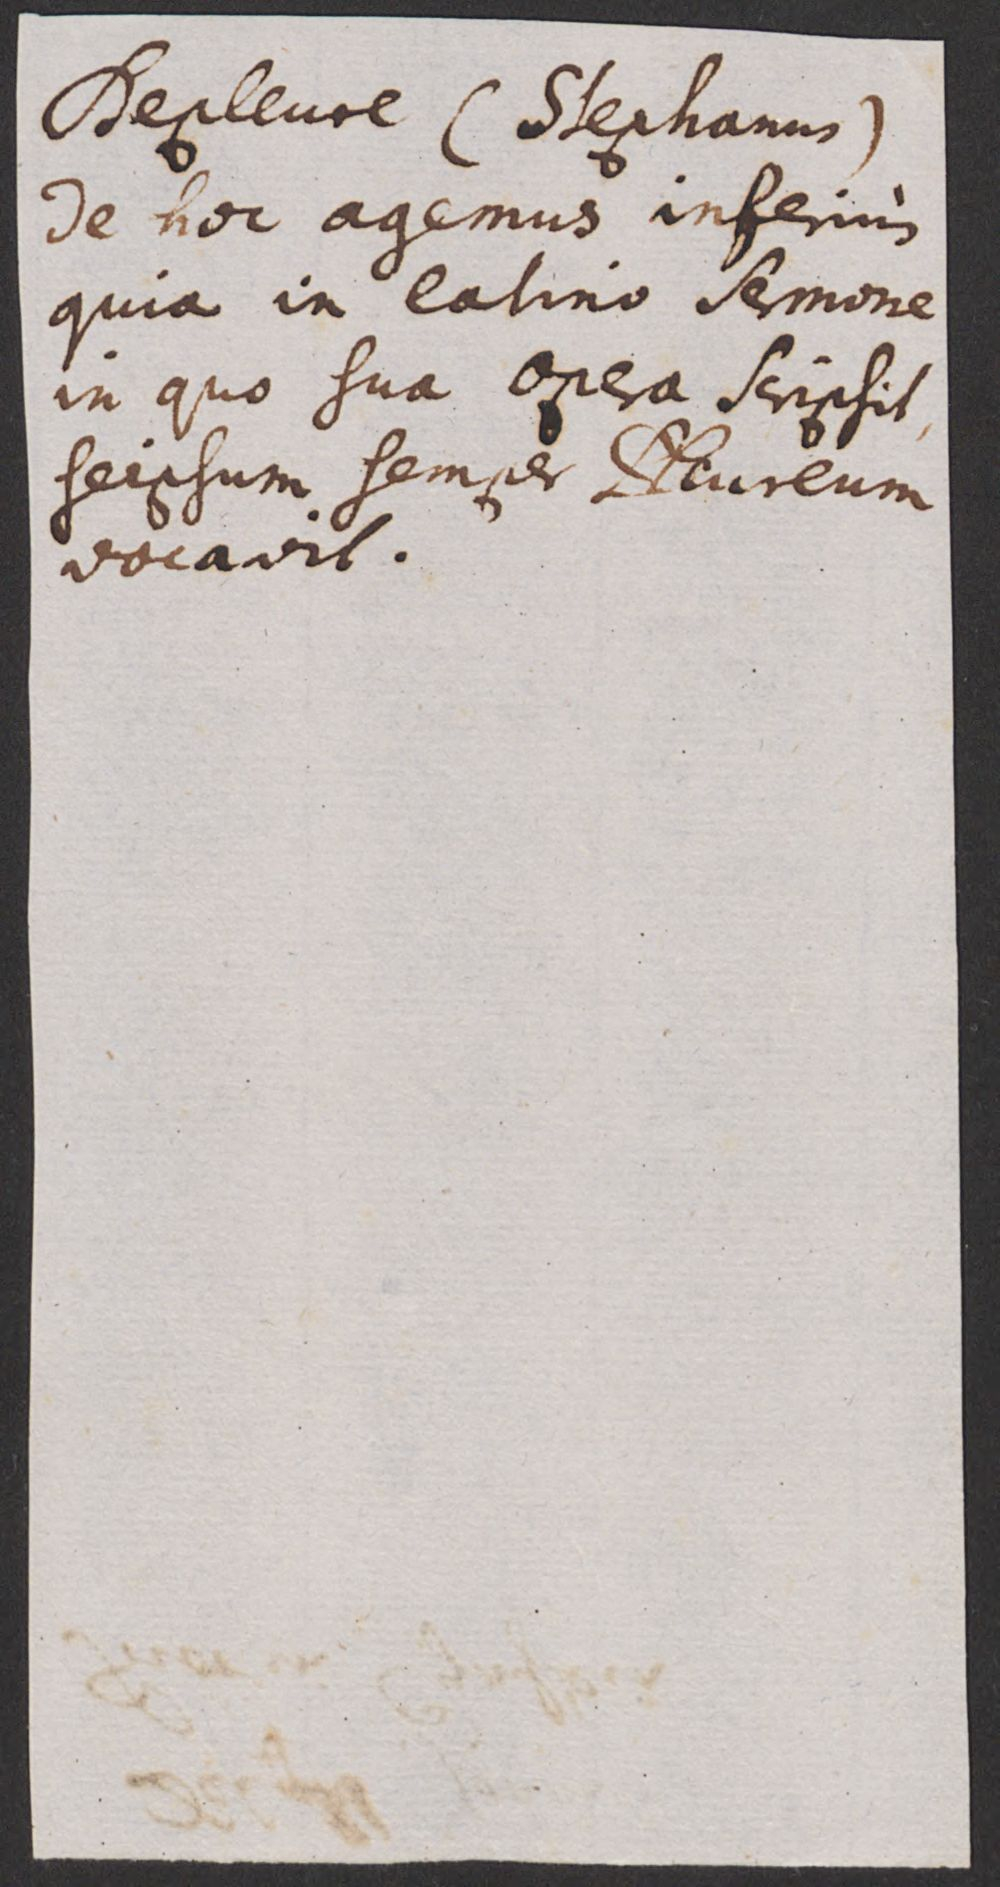 Depleure (Stephanus)
De hoc agemus inferiùs
quia in latino Sermone
in quo sua opera Scripsit,
seipsum semper Pleureum
vocavit.